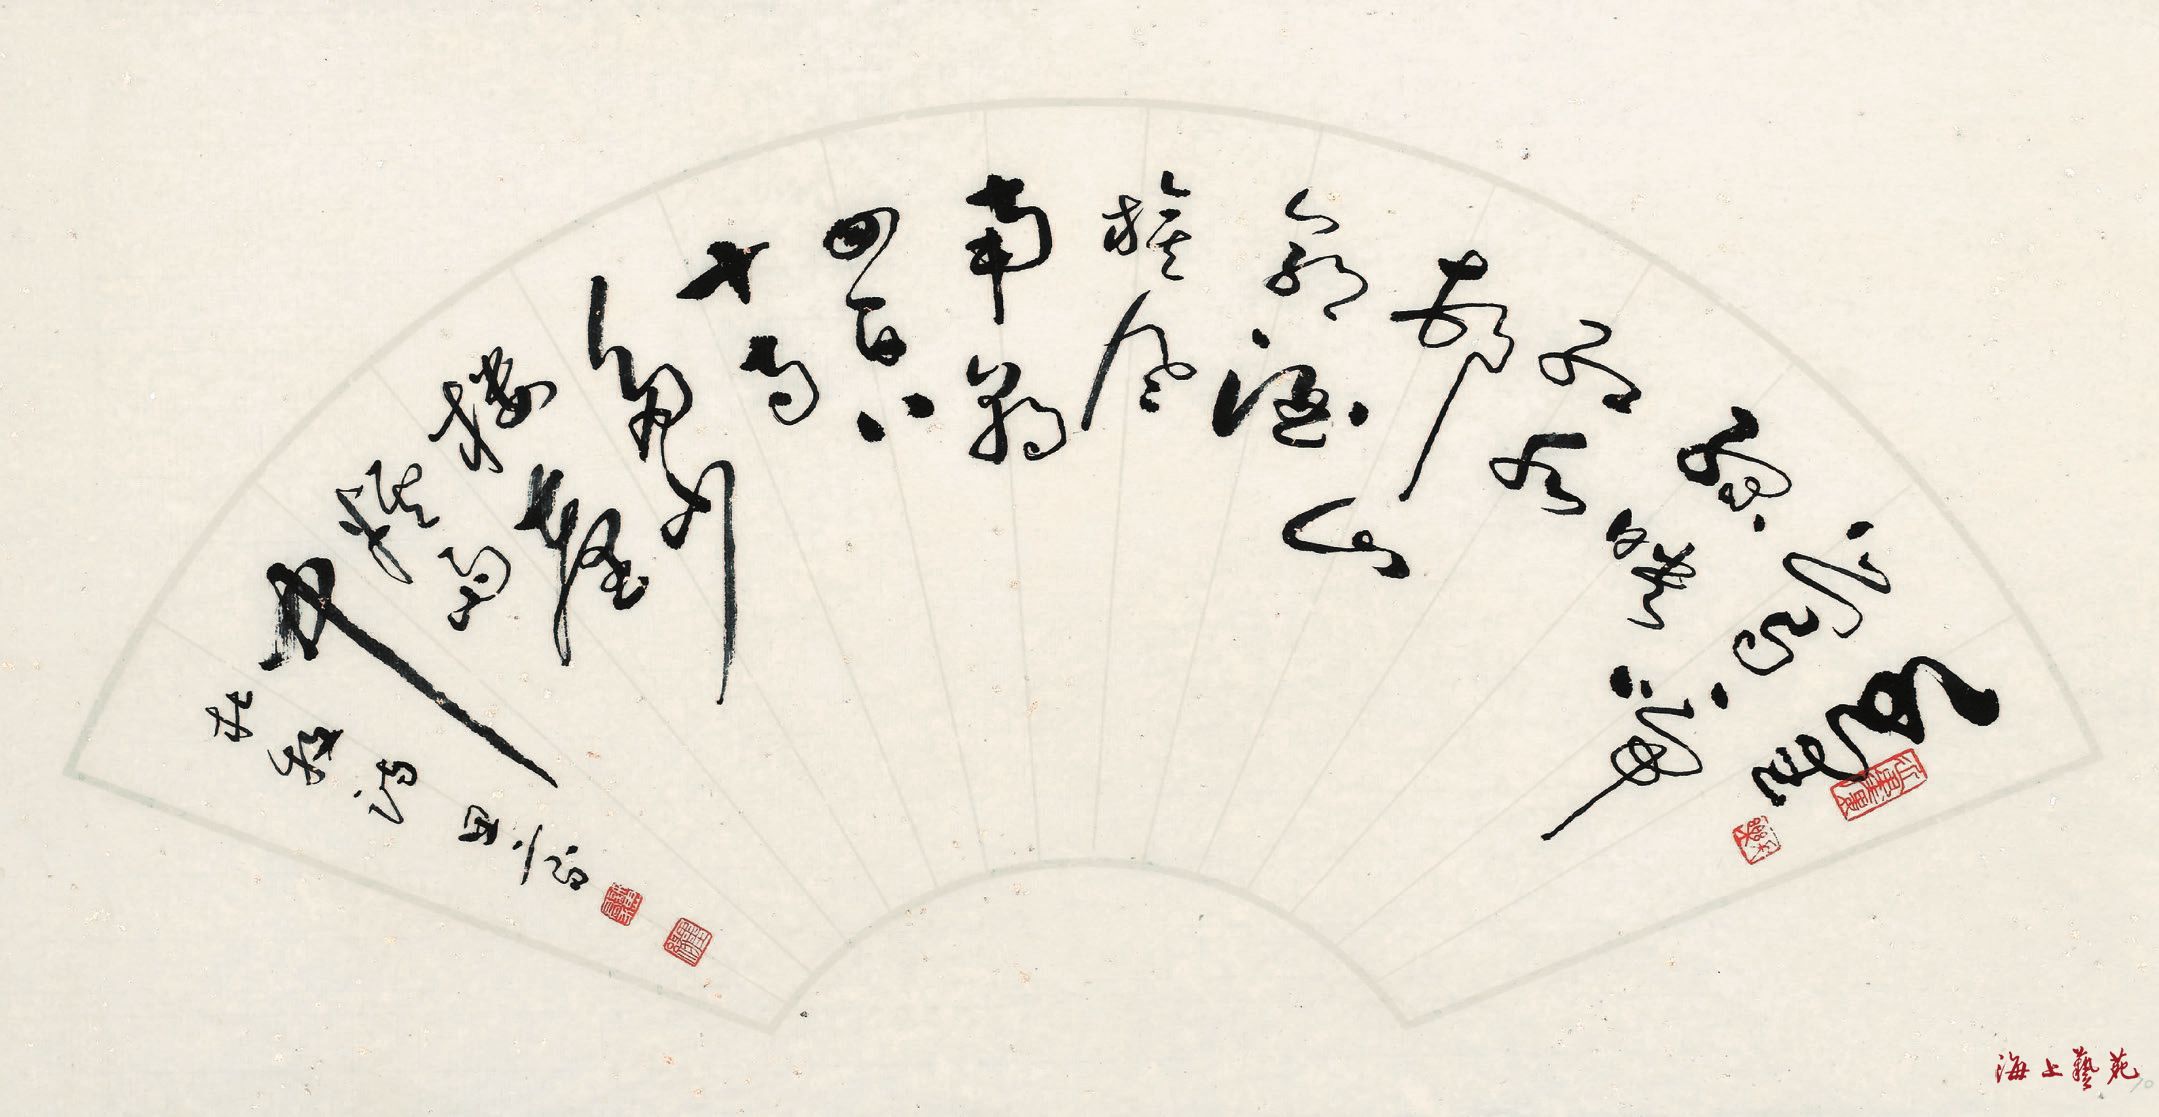 千里
鶯啼
綠映紅
水
村山
郭酒
旗風
南朝
四百八
十寺
多少
樓臺
煙雨
中
杜牧詩
海上藝苑